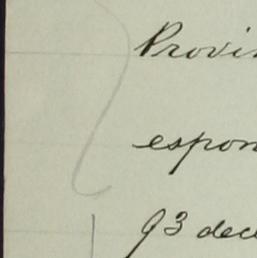 Provin
espon
93 dec